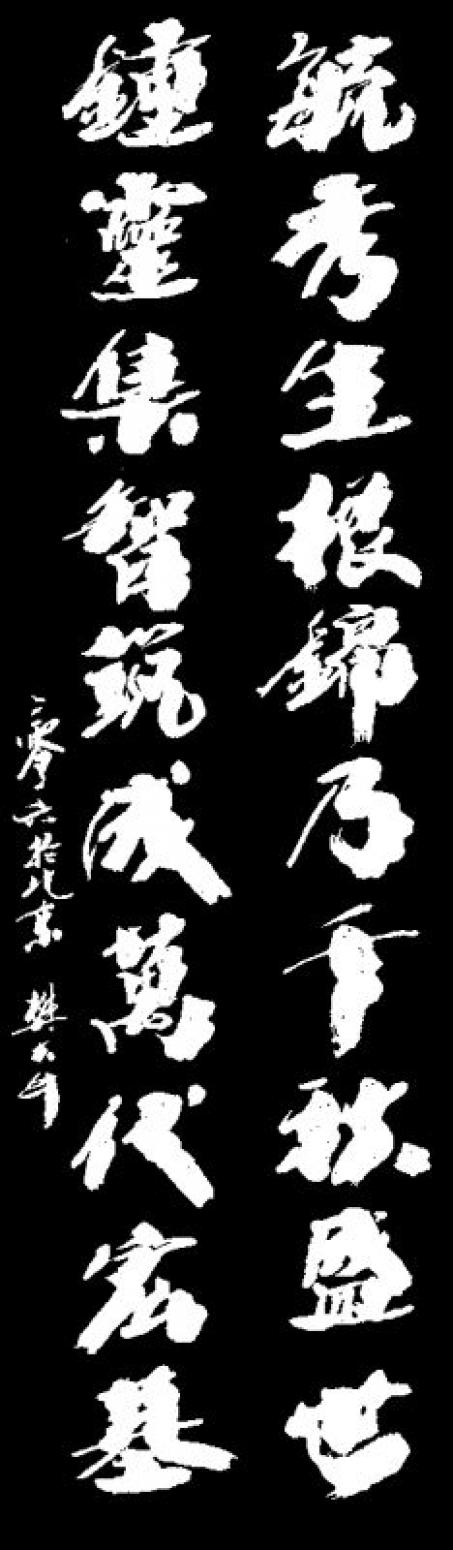 毓秀生根錦乃千秋盛世
鍾靈集智筑成萬代宏基
二零六於北京 樊大牛